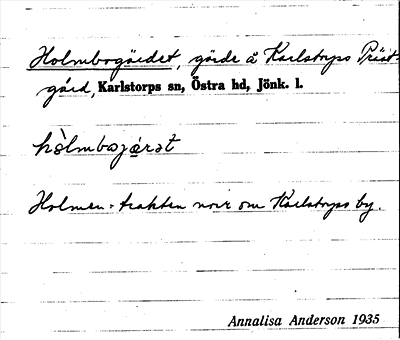 Holmbogärdet, gärde å Karlstorps Präst-
gård, Karlstorps sn, Östra hd, Jönk. l.
Holmen = trakten norr om Karlstorps by.
Annalisa Anderson 1935